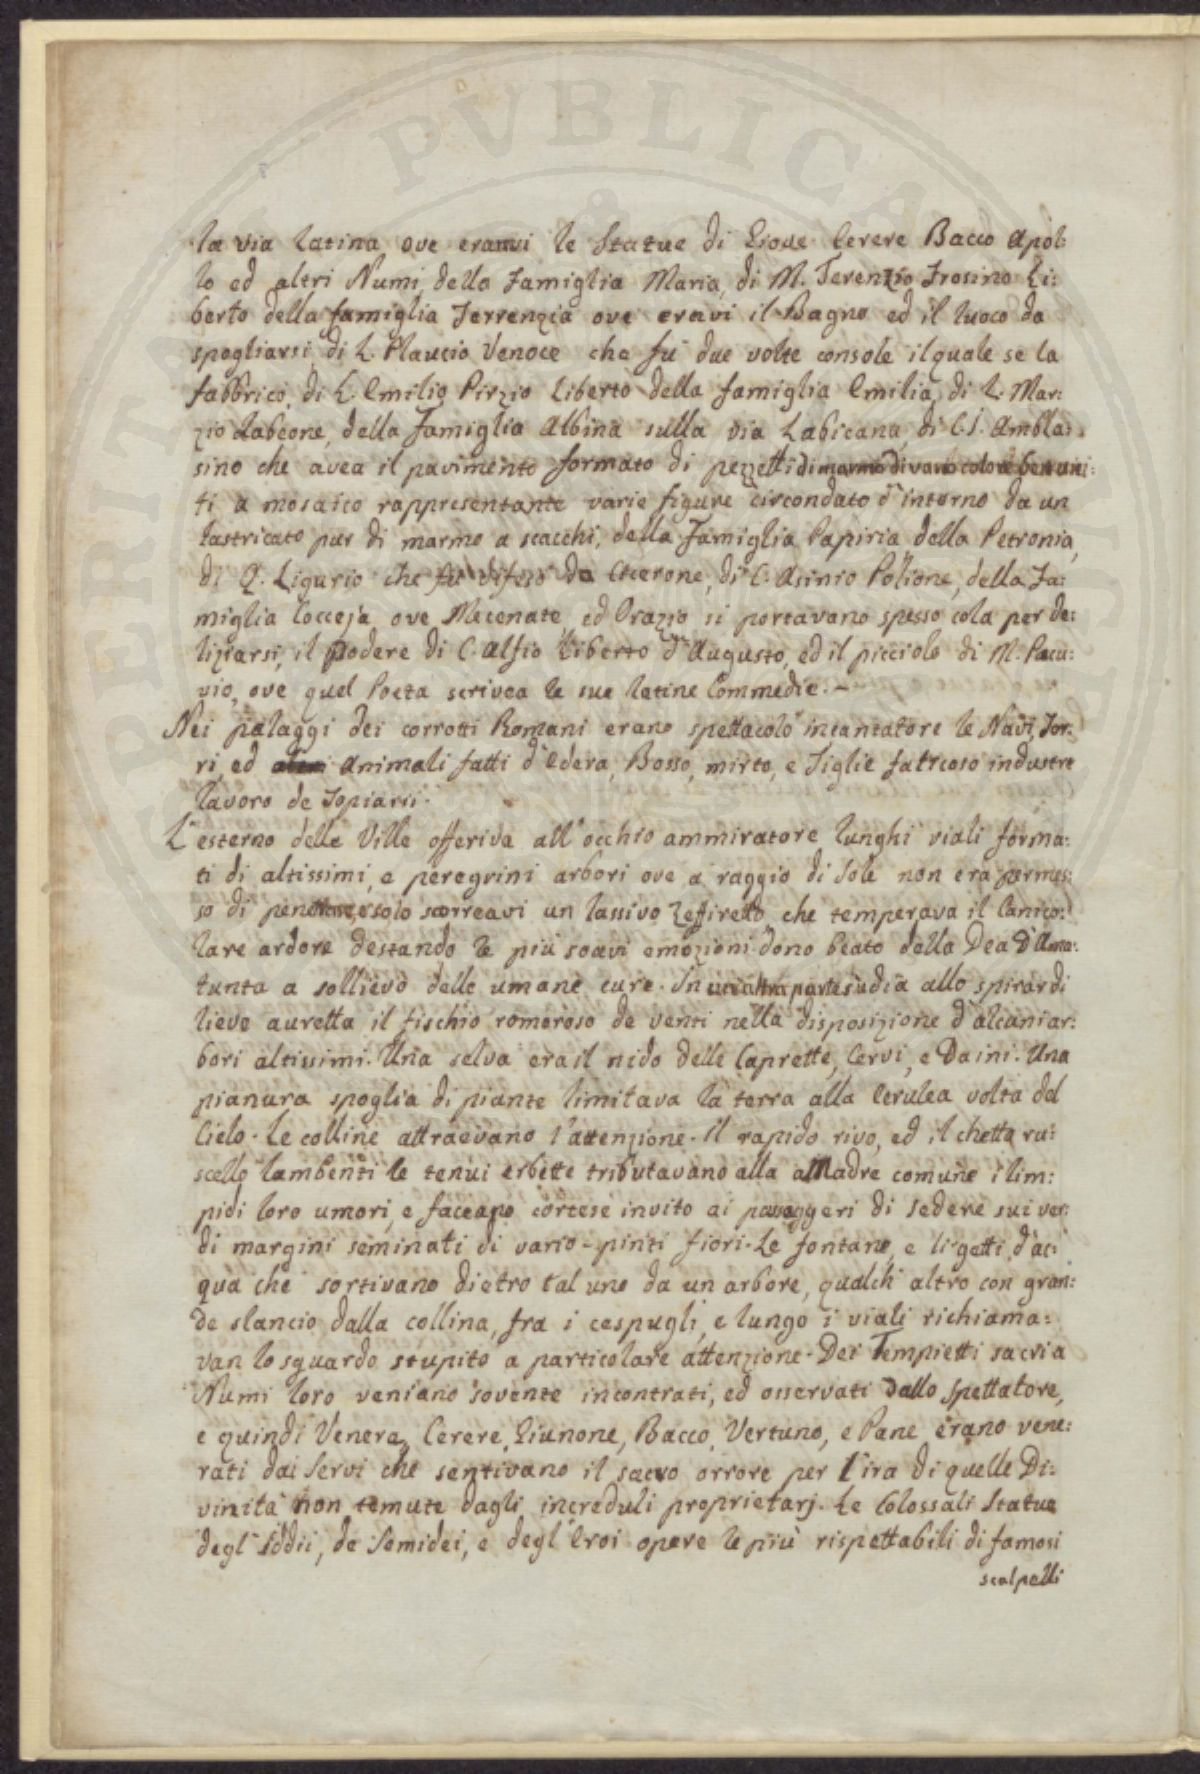 la via Latina ove eranvi le Statue di Giove Cerere Bacco Apol:
lo ed altri Numi, della Famiglia Maria, di M. Terenzio Frosino Li:
berto della famiglia Terrenzia ove eravi il Bagno ed il luoco da
spogliarsi, di L. Plaucio Venoce che fù due volte console il quale se la
fabbricò, di L. Emilio Pirzio Liberto della famiglia Emilia, di L. Mar:
zio Labeone, della Famiglia Albina sulla via Labicana, di C. I. Ambla:
sino che avea il pavimento formato di pezzetti di marmo di vario colore ben uni:
ti a mosaico rappresentante varie figure circondato d'intorno da un
lastricato pur di marmo a scacchi, della Famiglia Papiria della Petronia,
di Q. Ligurio che fù difeso da Cicerone, di C. Asinio Polione, della Fa:
miglia Cocceja ove Mecenate ed Orazio si portavano spesso colà per de:
liziarsi, il podere di C. Alfio Liberto d'Augusto, ed il picciolo di M. Pacu:
vio, ove quel Poeta scrivea le sue latine Commedie. -
Nei palaggi dei corrotti Romani erano spettacolo incantatore le Navi, Tor:
ri, ed animali fatti d'Edera, Bosso, mirto, e Tiglie faticoso industre
lavoro de Topiarri.
L'esterno delle Ville offeriva all'occhio ammiratore lunghi viali forma:
ti di altissimi, e peregrini arbori ove a raggio di Sole non era permes:
so di penetrare, solo scorreavi un lassivo Zeffiretto che temperava il Canico:
lare ardore destando le più soavi emozioni dono beato della Dea d'Ama:
tunta a sollievo delle umane cure. In un'altra parte s'udìa allo spirar di
lieve auretta il fischio romoroso de venti nella disposizione d'alcuni ar:
bori altissimi. Una selva era il nido delle Caprette, Cervi, e Daini. Una
pianura spoglia di piante limitava la terra alla Cerulea volta del
Cielo. Le colline attraevano l'attenzione. Il rapido rivo, ed il cheto ru:
scello lambenti le tenui erbette tributavano alla Madre comune i lim:
pidi loro umori, e faceano cortese invito ai passaggeri di sedere sui ver:
di margini seminati di vario-pinti fiori. Le fontane, e li getti d'ac:
qua che sortivano dietro tal uno da un arbore, qualch'altro con gran:
de slancio dalla collina, fra i cespugli, e lungo i viali richiama:
van lo sguardo stupito a particolare attenzione. Dei Tempietti sacri a
Numi loro veniano sovente incontrati, ed osservati dallo spettatore,
e quindi Venere, Cerere, Giunone, Bacco, Vertuno, e Pane erano vene:
rati dai Servi che sentivano il sacro orrore per l'ira di quelle Di:
vinità non temute dagli increduli proprietarj. Le Colossali Statue
degl'Iddii, de Semidei, e degl'Eroi opere le più rispettabili di famosi
scalpelli
PERITAS PVBLICA